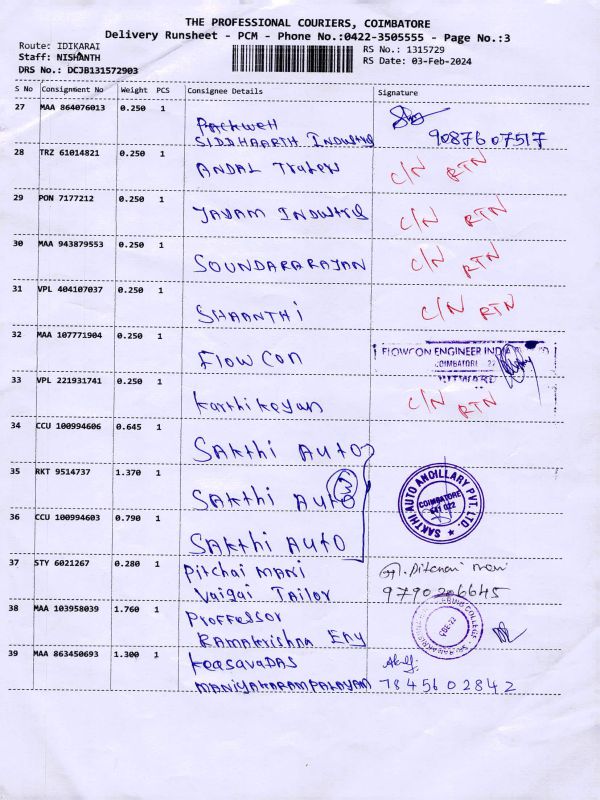 THE PROFESSIONAL COURIERS, COIMBATORE
Delivery Runsheet - PCM - Phone No.:0422-3505555 - Page No.:3
Route: IDIKARAI
RS No.: 1315729
Staff: NISHANTH
RS Date: 03-Feb-2024
DRS No.: DCJB131572903
S No Consignment No Weight PCS Consignee Details Signature
27 MAA 864076013 0.250 1 Packwell
SIDDHAARTH INDUSTRIES 9087607517
28 TRZ 61014821 0.250 1 ANDAL Traders C/N RTN
29 PON 7177212 0.250 1 JAYAM INDUSTRIES C/N RTN
30 MAA 943879553 0.250 1 SOUNDARARAJAN C/N RTN
31 VPL 404107037 0.250 1 SHAANTHI C/N RTN
32 MAA 107771904 0.250 1 FLOWCON FLOWCON ENGINEER
33 VPL 221931741 0.250 1 Karthikeyan C/N RTN
34 CCU 100994606 0.645 1 SAKthi AUTO
35 RKT 9514737 1.370 1 SAKthi AUTO
36 CCU 100994603 0.790 1 SAKthi AUTO
SAKTHI AUTO ANCILLARY PVT. LTD.
COIMBATORE
641 022
37 STY 6021267 0.280 1 Pitchai MANI
Vaigai Tailor 9790206645
38 MAA 103958039 1.760 1 Proffessor
RAMAKRISHNA ENG
CBE-22
39 MAA 863450693 1.300 1 KeesavaDAS
MANIYAKARAMPALAYAM 7845602842